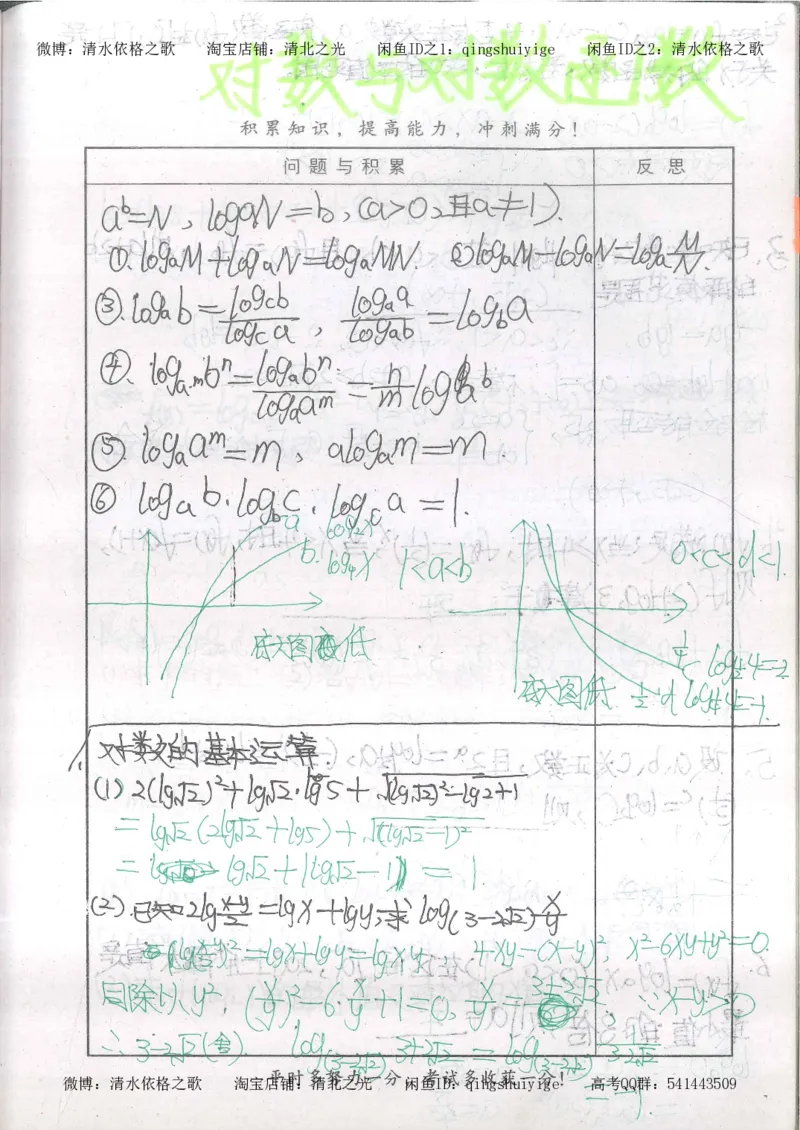 微博：清水依格之歌 淘宝店铺：清北之光 闲鱼ID之1：qingshuiyige 闲鱼ID之2：清水依格之歌
对数与对数函数
积累知识，提高能力，冲刺满分！
问题与积累 反思
a^b=N，log_a N=b，(a>0，且a≠1).
①. log_a M+log_a N=log_a MN. ②log_a M-log_a N=log_a M/N.
③. log_a b=log_c b/log_c a，log_a a/log_a b=log_b a
④. log_{a^m} b^n=log_a b^n/log_a a^m=n/m log_a b
⑤ log_a a^m=m、a^{log_a m}=m
⑥ log_a b·log_b c·log_c a=1.
a. log_2 x
b. log_4 x 1<a<b 0<c<d<1
底大图低
底大图低
1. 对数的基本运算.
(1) 2(lg√2)²+lg√2·lg5+√((lg√2)²-lg2+1)
=lg√2(2lg√2+lg5)+√((lg√2-1)²)
=lg√2+|lg√2-1|=1
(2). 已知2lg (x-y)/2=lgx+lgy，求log_(3-2√2) x/y
=lgx+lgy=lgxy， 4xy=(x-y)²，x²-6xy+y²=0.
同除以y²，(x/y)²-6·x/y+1=0，
∴3-2√2(舍). log_(3-2√2) 3+2√2=log_(3-2√2)
=-1
平时多努力一分，考试多收获一分！
微博：清水依格之歌 淘宝店铺：清北之光 闲鱼ID：qingshuiyige 高考QQ群：541443509